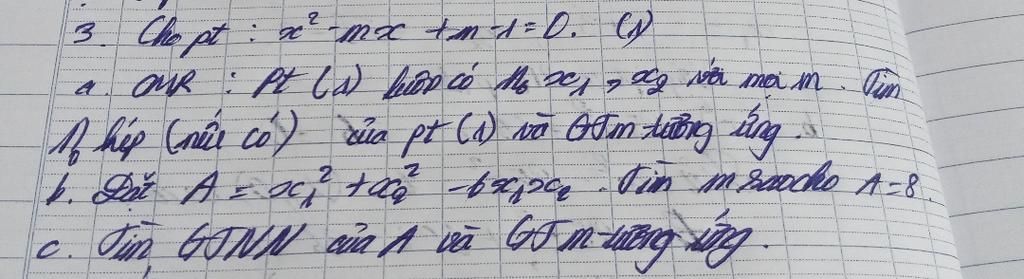 3. Cho pt : x² - mx + m - 1 = 0. (1)
a. CMR : Pt (1) luôn có n₀ x₁, x₂ với mọi m. Tìm
n₀ kép (nếu có) của pt (1) và GTm tương ứng.
b. Đặt A = x₁² + x₂² - 6x₁x₂. Tìm m sao cho A = 8.
c. Tìm GTNN của A và GTm tương ứng.